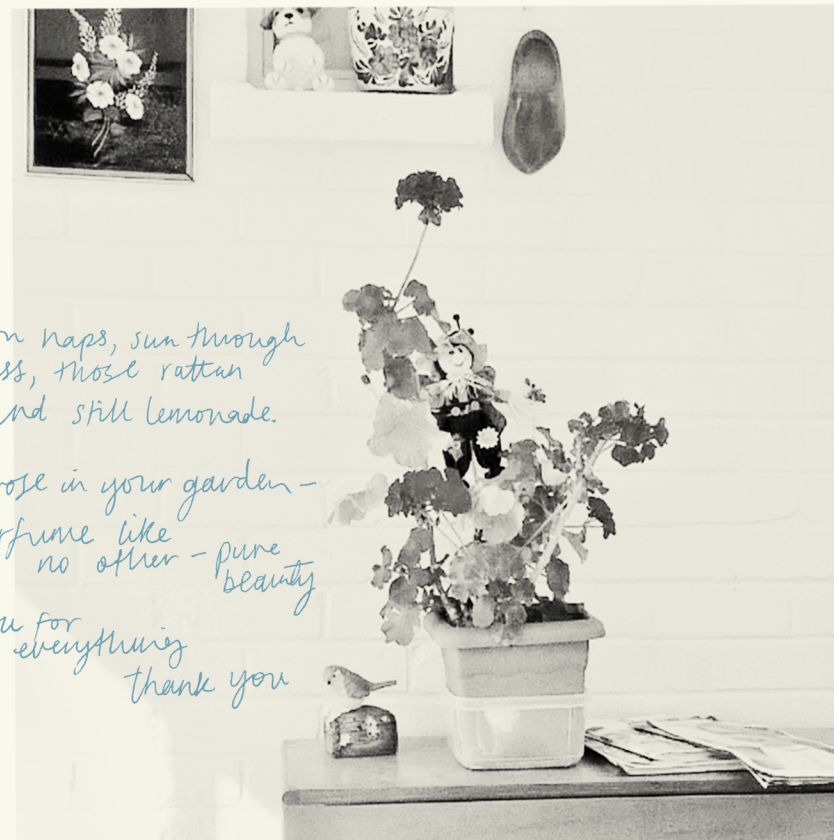 naps, sun through
those rattan
still lemonade.
in your garden–
like
no other – pure
beauty
for
everything
thank you